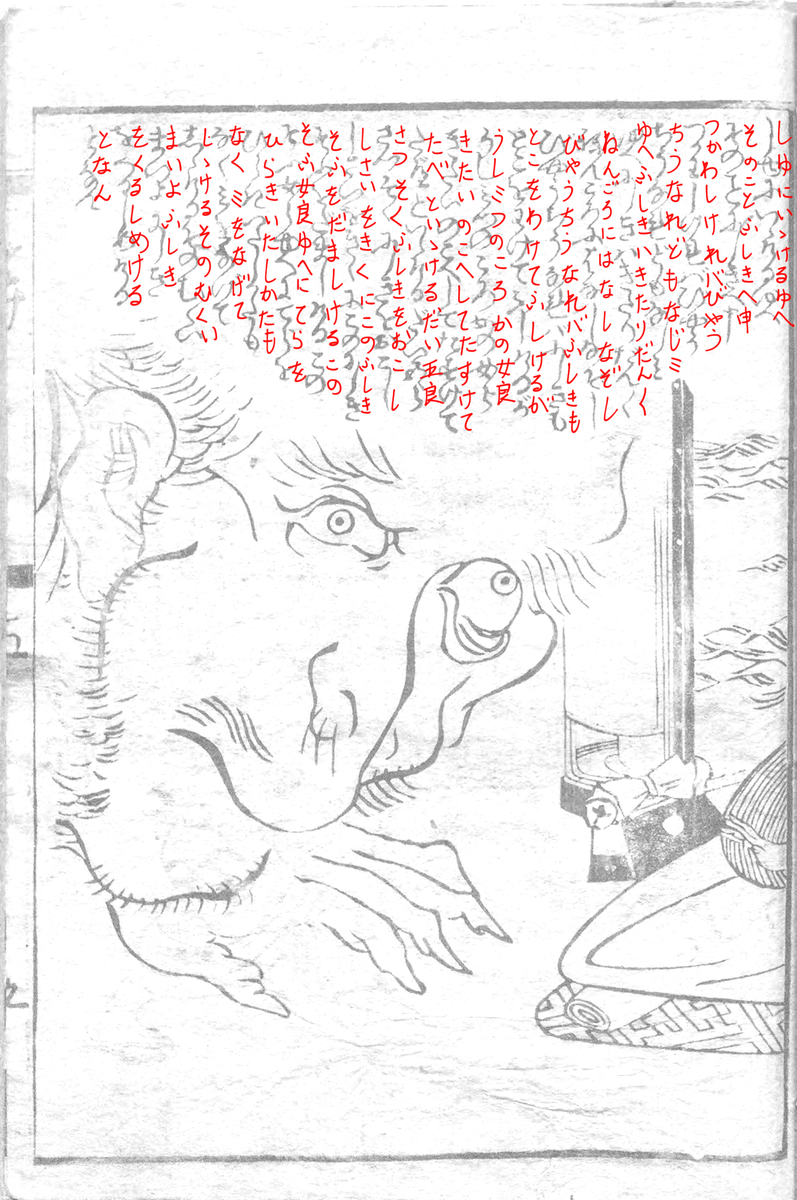 しゆにいゝけるゆへ
そのことふしきへ申
つかわしけれバびやう
ちうなれどもなじミ
ゆへふしきいきたりだんく
ねんごろにはなしなぞし
びやうちうなれバふしきも
とこをわけてふしけるが
うしミつのころかの女良
きたいのこへしてたすけて
たべといゝけるだい五良
さつそくふしきをおこし
しさいをきくにこのふしき
そふをだましけるこの
そふ女良ゆへにてらを
ひらきいたしかたも
なくミをなげて
しゝけるそのむくい
まいよふしき
をくるしめける
となん